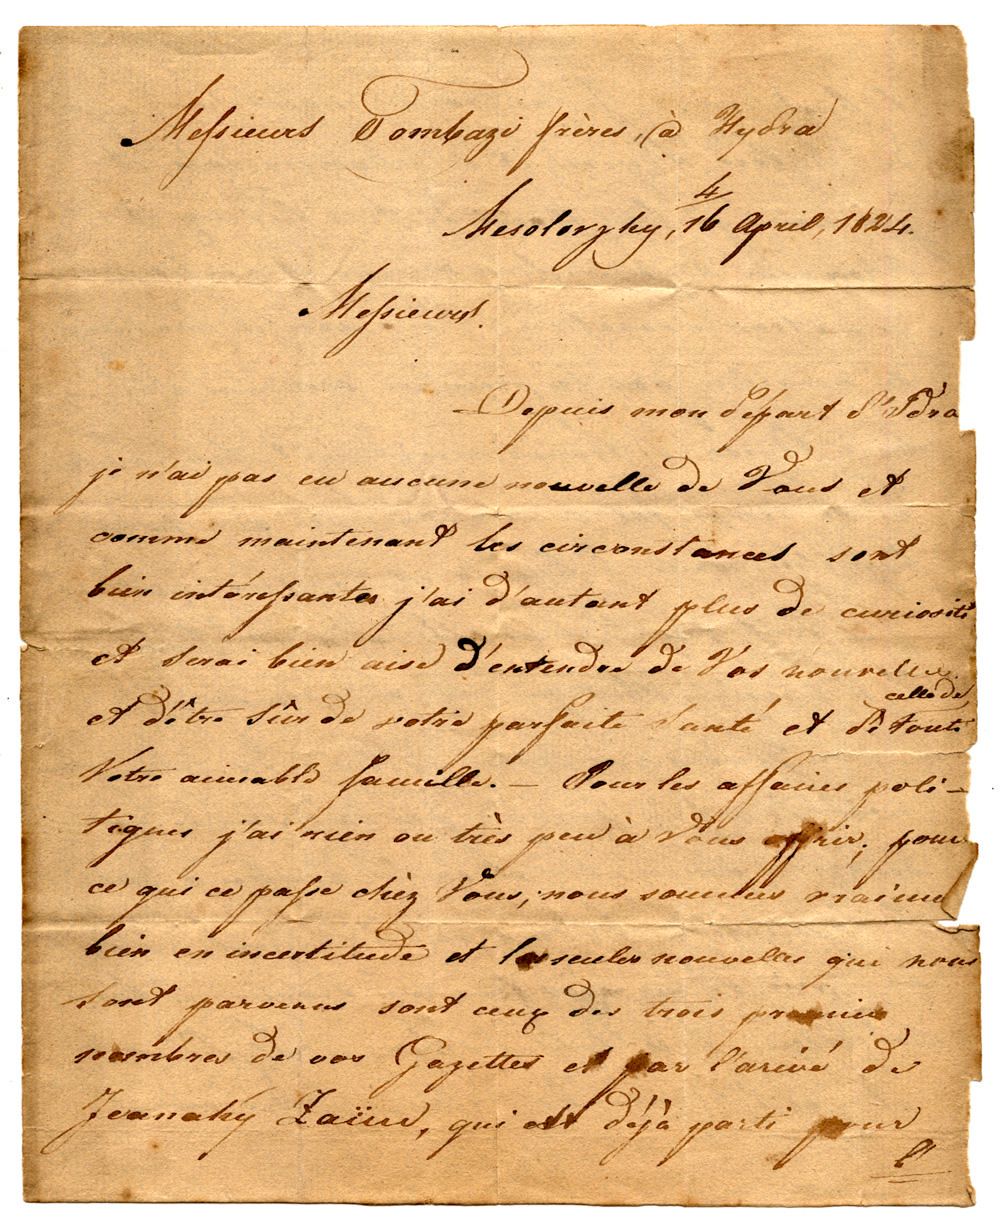 Messieurs Tombazi frères, à Hydra
Mesolonghy, 4/16 April, 1824.
Messieurs.
Depuis mon départ d'Idra
je n'ai pas eu aucune nouvelle de Vous et
comme maintenant les circonstances sont
bien intéressantes j'ai d'autant plus de curiosité
et serai bien aise d'entendre de Vos nouvelles
et d'être sûr de votre parfaite santé et de celle de toute
Votre aimable famille. — Pour les affaires poli-
tiques j'ai rien ou très peu à Vous offrir; pour
ce qui ce passe chèz Vous, nous sommes vraime
bien en incertitude et les seules nouvelles que nous
sont parvenus sont ceux des trois premiers
nombres de vos Gazettes et par l'arivé de
Jvanaky, qui est déjà parti pour
l'